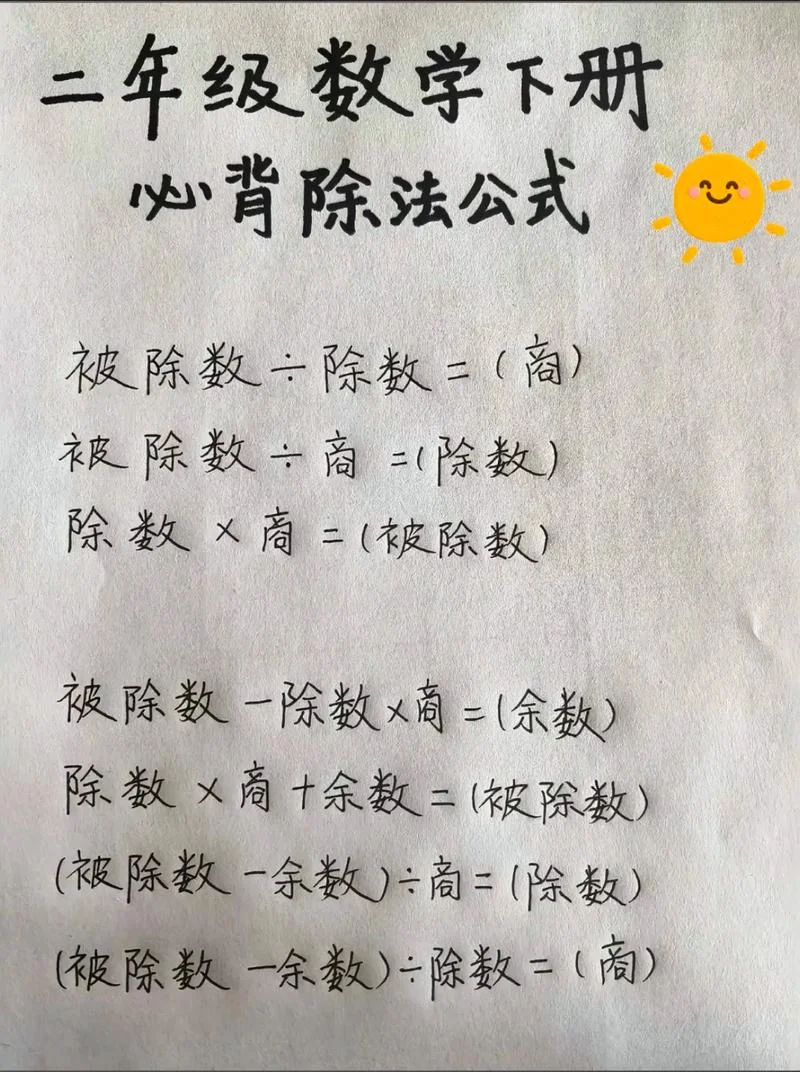 二年级数学下册
必背除法公式
被除数÷除数=(商)
被除数÷商=(除数)
除数×商=(被除数)
被除数-除数×商=(余数)
除数×商+余数=(被除数)
(被除数-余数)÷商=(除数)
(被除数-余数)÷除数=(商)